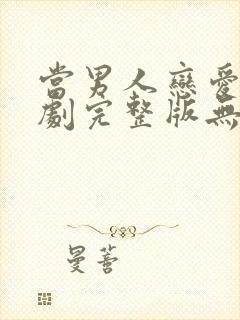 當男人戀愛
劇完整版無
曼蓉